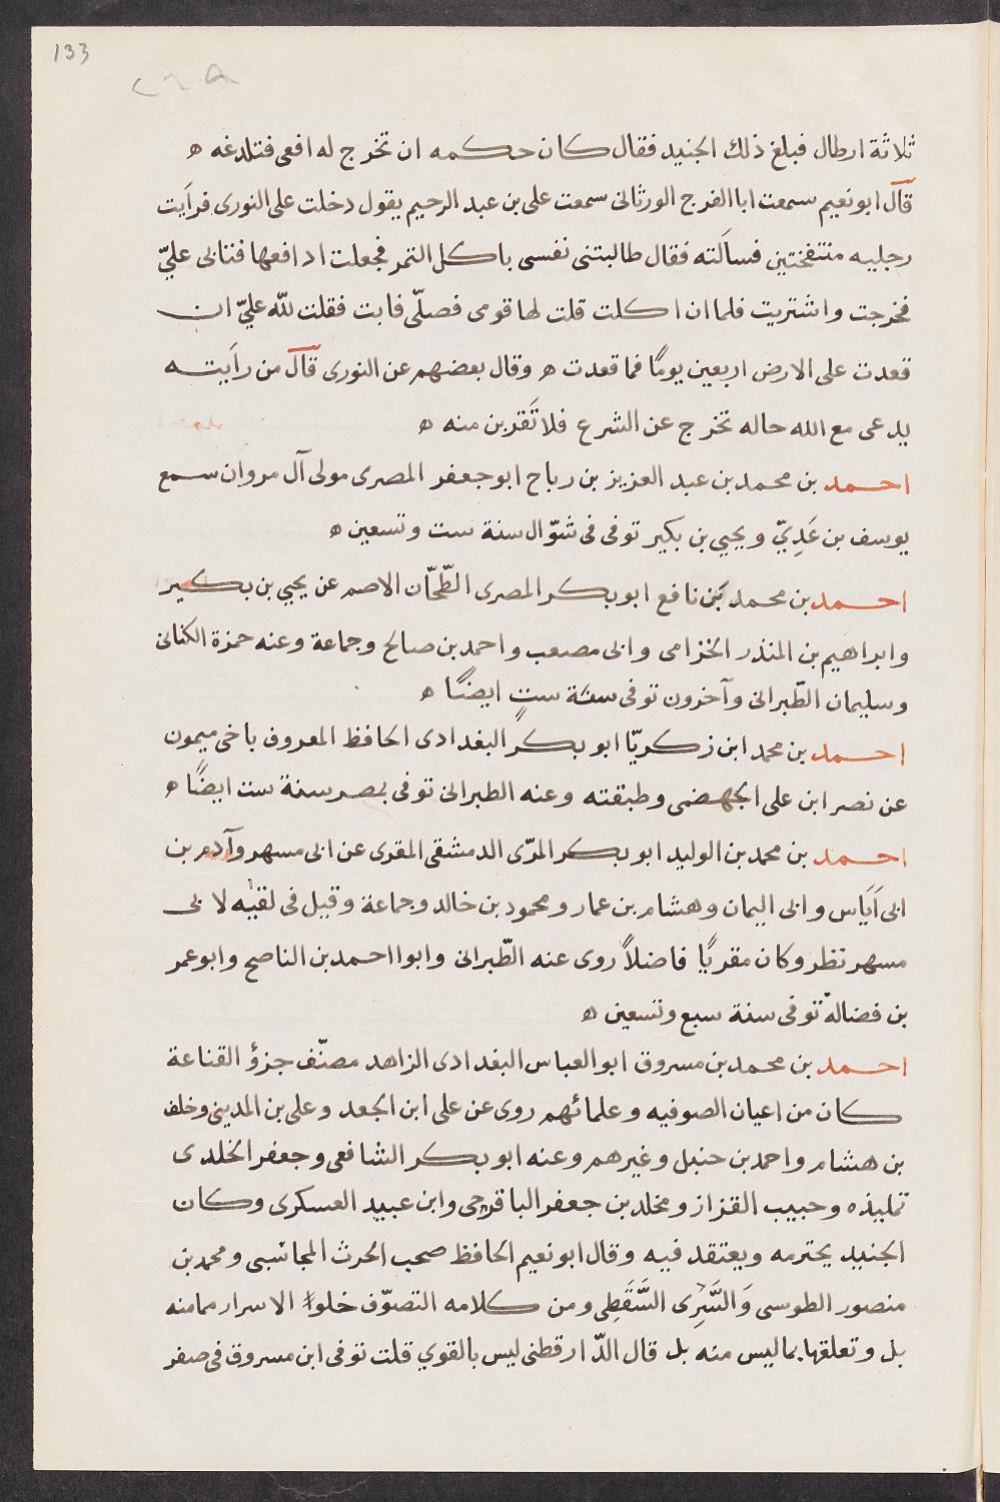 133
ثلاثة ارطال فبلغ ذلك الجنيد فقال كان حكمه ان تخرج له افعى فتلدغه ه
قال ابو نعيم سمعت ابا الفرج الورثانى سمعت على بن عبد الرحيم يقول دخلت على النورى فرأيت
رجليه منتفختين فسألته فقال طالبتنى نفسى باكل التمر فجعلت ادافعها فتابى علىّ
فخرجت واشتريت فلما ان اكلت قلت لها قومى فصلّى فابت فقلت للّه علىّ ان
قعدت على الارض اربعين يومًا فما قعدت ه وقال بعضهم عن النورى قال من رأيته
يدعى مع الله حاله تخرج عن الشرع فلا تَقربن منه ه
احمد بن محمد بن عبد العزيز بن رباح ابو جعفر المصرى مولى آل مروان سمع
يوسف بن عَدِيّ ويحيى بن بكير توفى فى شوّال سنة ست وتسعين ه
احمد بن محمد بَن نافع ابو بكر المصرى الطّحّان الاصم عن يحيى بن بكير
وابراهيم بن المنذر الخزامى وابى مصعب واحمد بن صالح وجماعة وعنه حمزة الكنانى
وسليمان الطّبرانى وآخرون توفى سنة ستٍ ايضًا ه
احمد بن محمد ابن زكريّا ابو بكر البغدادى الحافظ المعروف باخى ميمون
عن نصر ابن على الجهضمى وطبقته وعنه الطبرانى توفى بمصر سنة ست ايضًا ه
احمد بن محمد بن الوليد ابو بكر المرّى الدمشقى المقرى عن ابى مسهر وآدم بن
ابى اَيَاس وابى اليمان وهشام بن عمار ومحمود بن خالد وجماعة وقيل فى لقيه لابى
مسهر نظر وكان مقريًا فاضلاً روى عنه الطّبرانى وابوا احمد بن الناصح وابو عمر
بن فضالة توفى سنة سبع وتسعين ه
احمد بن محمد بن مسروق ابو العباس البغدادى الزاهد مصنّف جزؤ القناعة
كان من اعيان الصوفيه وعلمائهم روى عن على ابن الجعد وعلى بن المدينى وخلف
بن هشام واحمد بن حنبل وغيرهم وعنه ابو بكر الشافعى وجعفر الخلدى
تلميذه وحبيب القزاز ومخلد بن جعفر الباقرحى وابن عبيد العسكرى وكان
الجنيد يحترمه ويعتقد فيه وقال ابو نعيم الحافظ صحب الحرث المحاسبى ومحمد بن
منصور الطوسى وَالسَّرِى السَّقَطِى ومن كلامه التصوّف خلو الاسرار مما منه
بد وتعلقها بما ليس منه بد قال الدّارقطنى ليس بالقوي قلت توفى ابن مسروق فى صفر